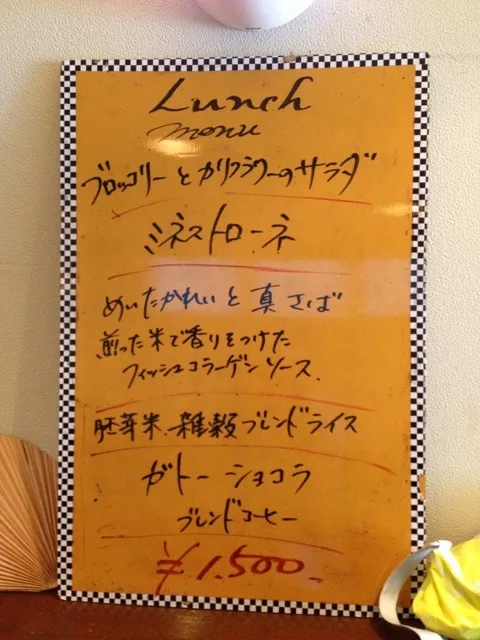 Lunch
menu
ブロッコリーとカリフラワーのサラダ
ミネストローネ
めいたかれいと真さば
煎った米で香りをつけた
フィッシュコラーゲンソース.
胚芽米.雑穀ブレンドライス
ガトーショコラ
ブレンドコーヒー
¥1.500.